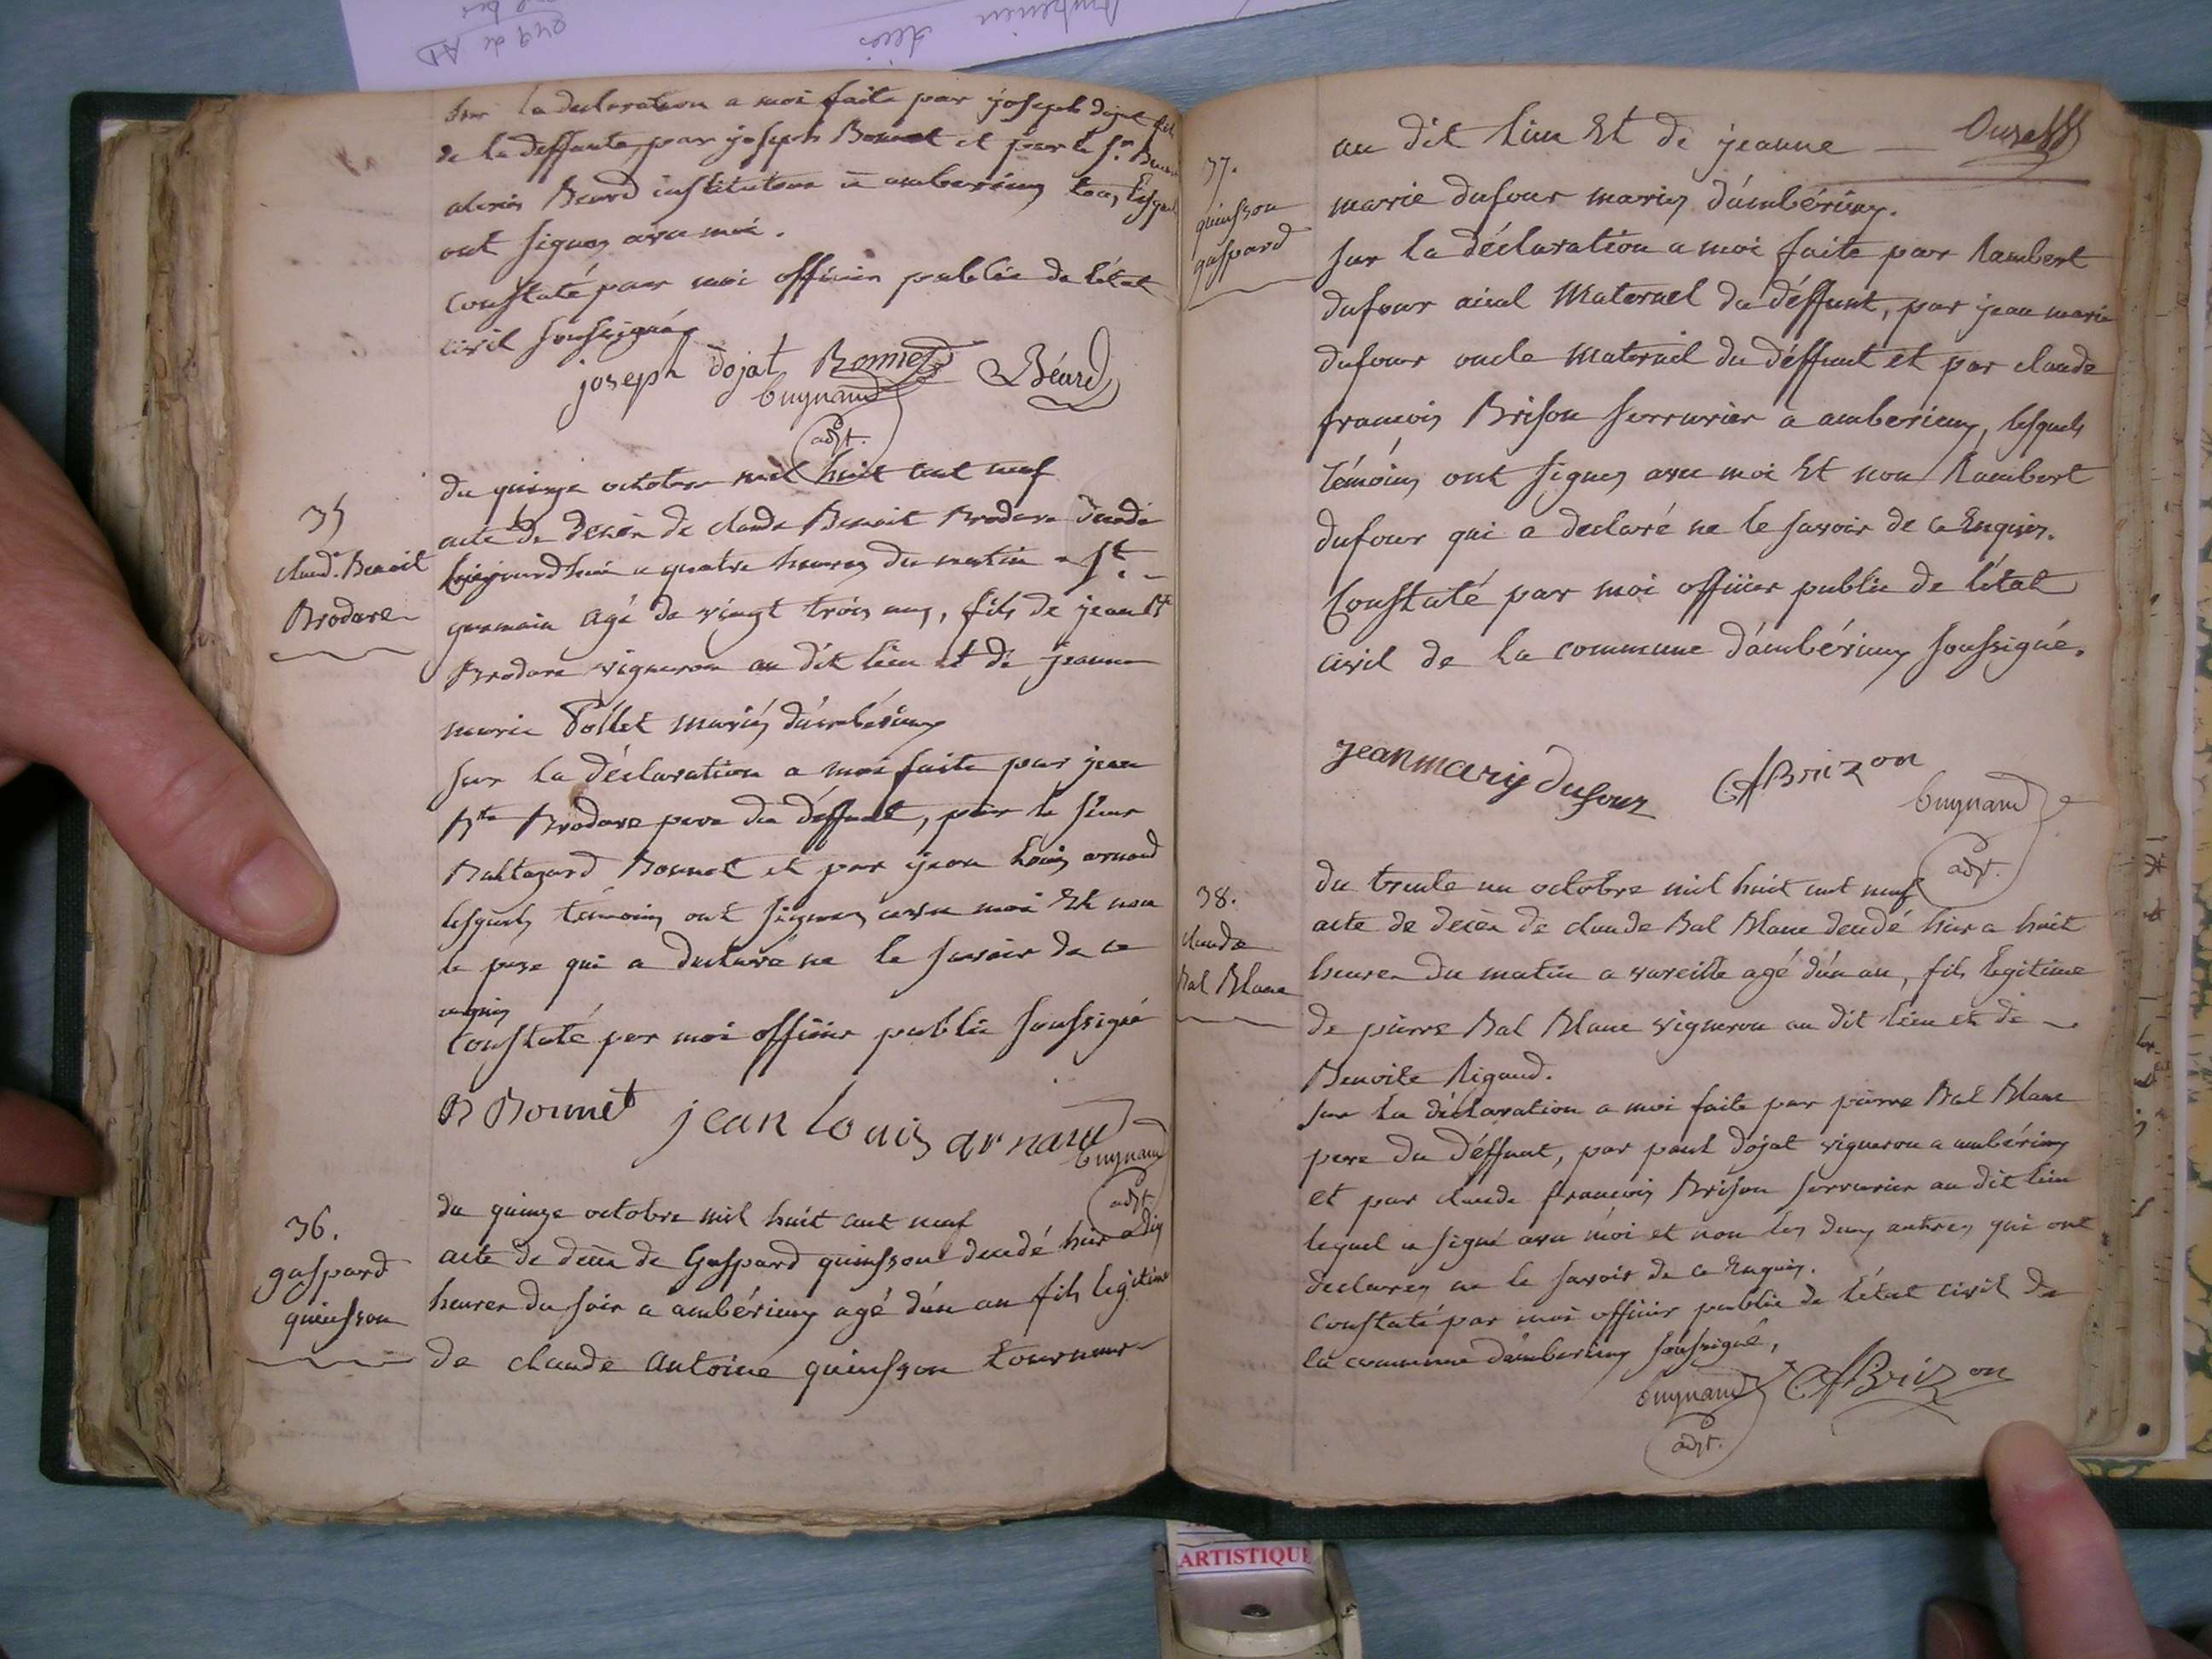 sur la declaration a moi faite par joseph dojat fils
de la deffunte, par joseph Bonnet et par le Sr.
alexis Beard instituteur a amberieux tous lesquels
ont signes avec moi.
Constaté par moi officier public de l'état
civil soussigné
joseph dojat Bonnet Béard
Cugnand
adjt.
35
claude. Benoit
Brodare
du quinze octobre mil huit cent neuf
acte de decès de claude Benoit Brodare decedé
aujourd'hui a quatre heures du matin a St. -
germain agé de vingt trois ans, fils de jean Bte
Brodare vigneron au dit lieu et de jeanne
marie Pollet mariés d'ambérieux
sur la déclaration a moi faite par jean
Bte Brodare pere du déffunt, par le sieur
Baltazard Bonnet et par jean Louis arnaud
lesquels témoins ont signes avec moi Et non
le pere qui a declaré ne le savoir de ce
enquis
Constaté par moi officier public soussigné
B Bonnet jean louis arnaud
Cugnand
adjt.
36.
gaspard
quinsson
du quinze octobre mil huit cent neuf
acte de decès de Gaspard quinsson decedé hier a dix
heures du soir a ambérieux agé d'un an fils legitime
de claude antoine quinsson tourneur
37.
quinsson
gaspard
au dit lieu Et de jeanne —
marie dufour mariés d'ambérieux.
sur la déclaration a moi faite par Rambert
dufour aieul Maternel du déffunt, par jean marie
dufour oncle Maternel du déffunt et par claude
francois Brison serrurier a amberieux, lesquels
témoins ont signes avec moi Et non Rambert
dufour qui a declaré ne le savoir de ce Enquis.
Constaté par moi officier public de l'état
civil de la commune d'ambérieux soussigné.
jean mariy dufour CfBrizon
Cugnand
adjt.
38.
claude
Bal Blanc
du trente un octobre mil huit cent neuf
acte de decès de claude Bal Blanc decedé hier a huit
heures du matin a vareille agé d'un an, fils legitime
de pierre Bal Blanc vigneron au dit lieu et de
Benoite Rigaud.
sur la déclaration a moi faite par pierre Bal Blanc
pere du déffunt, par paul dojat vigneron a ambérieux
et par claude francois Brison serrurier au dit lieu
lequel a signé avec moi et non les deux autres qui ont
declarez ne le savoir de ce Enquis.
constaté par moi officier public de l'état civil de
la commune d'ambérieux soussigné,
Cugnand CfBrizon
adjt.
ARTISTIQUE